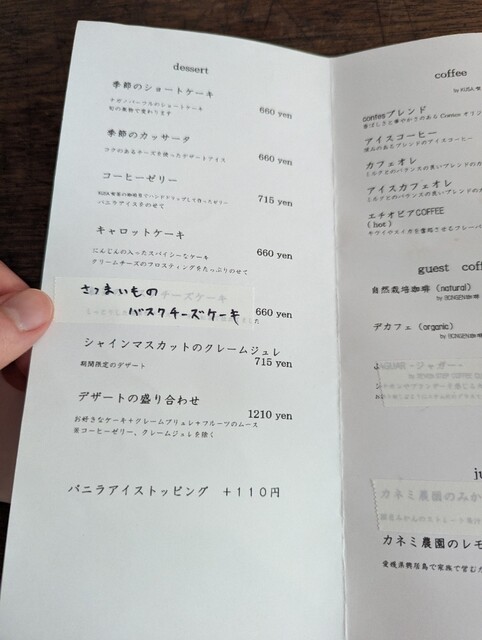 dessert
季節のショートケーキ
ナガノパープルのショートケーキ
旬の果物で変わります
660 yen
季節のカッサータ
コクのあるチーズを使ったデザートアイス
660 yen
コーヒーゼリー
バニラアイスをのせて
715 yen
キャロットケーキ
にんじんの入ったスパイシーなケーキ
クリームチーズのフロスティングをたっぷりのせて
660 yen
さつまいもの
バスクチーズケーキ
660 yen
シャインマスカットのクレームジュレ
期間限定のデザート
715 yen
デザートの盛り合わせ
お好きなケーキ+クレームブリュレ+フルーツのムース
※コーヒーゼリー、クレームジュレを除く
1210 yen
バニラアイストッピング +110円
coffee
contesブレンド
アイスコーヒー
カフェオレ
アイスカフェオレ
エチオピアCOFFEE
(hot)
guest
自然栽培珈琲 (natural)
デカフェ (organic)
JAGUAR -ジャガー-
カネミ農園のみか
カネミ農園のレモ